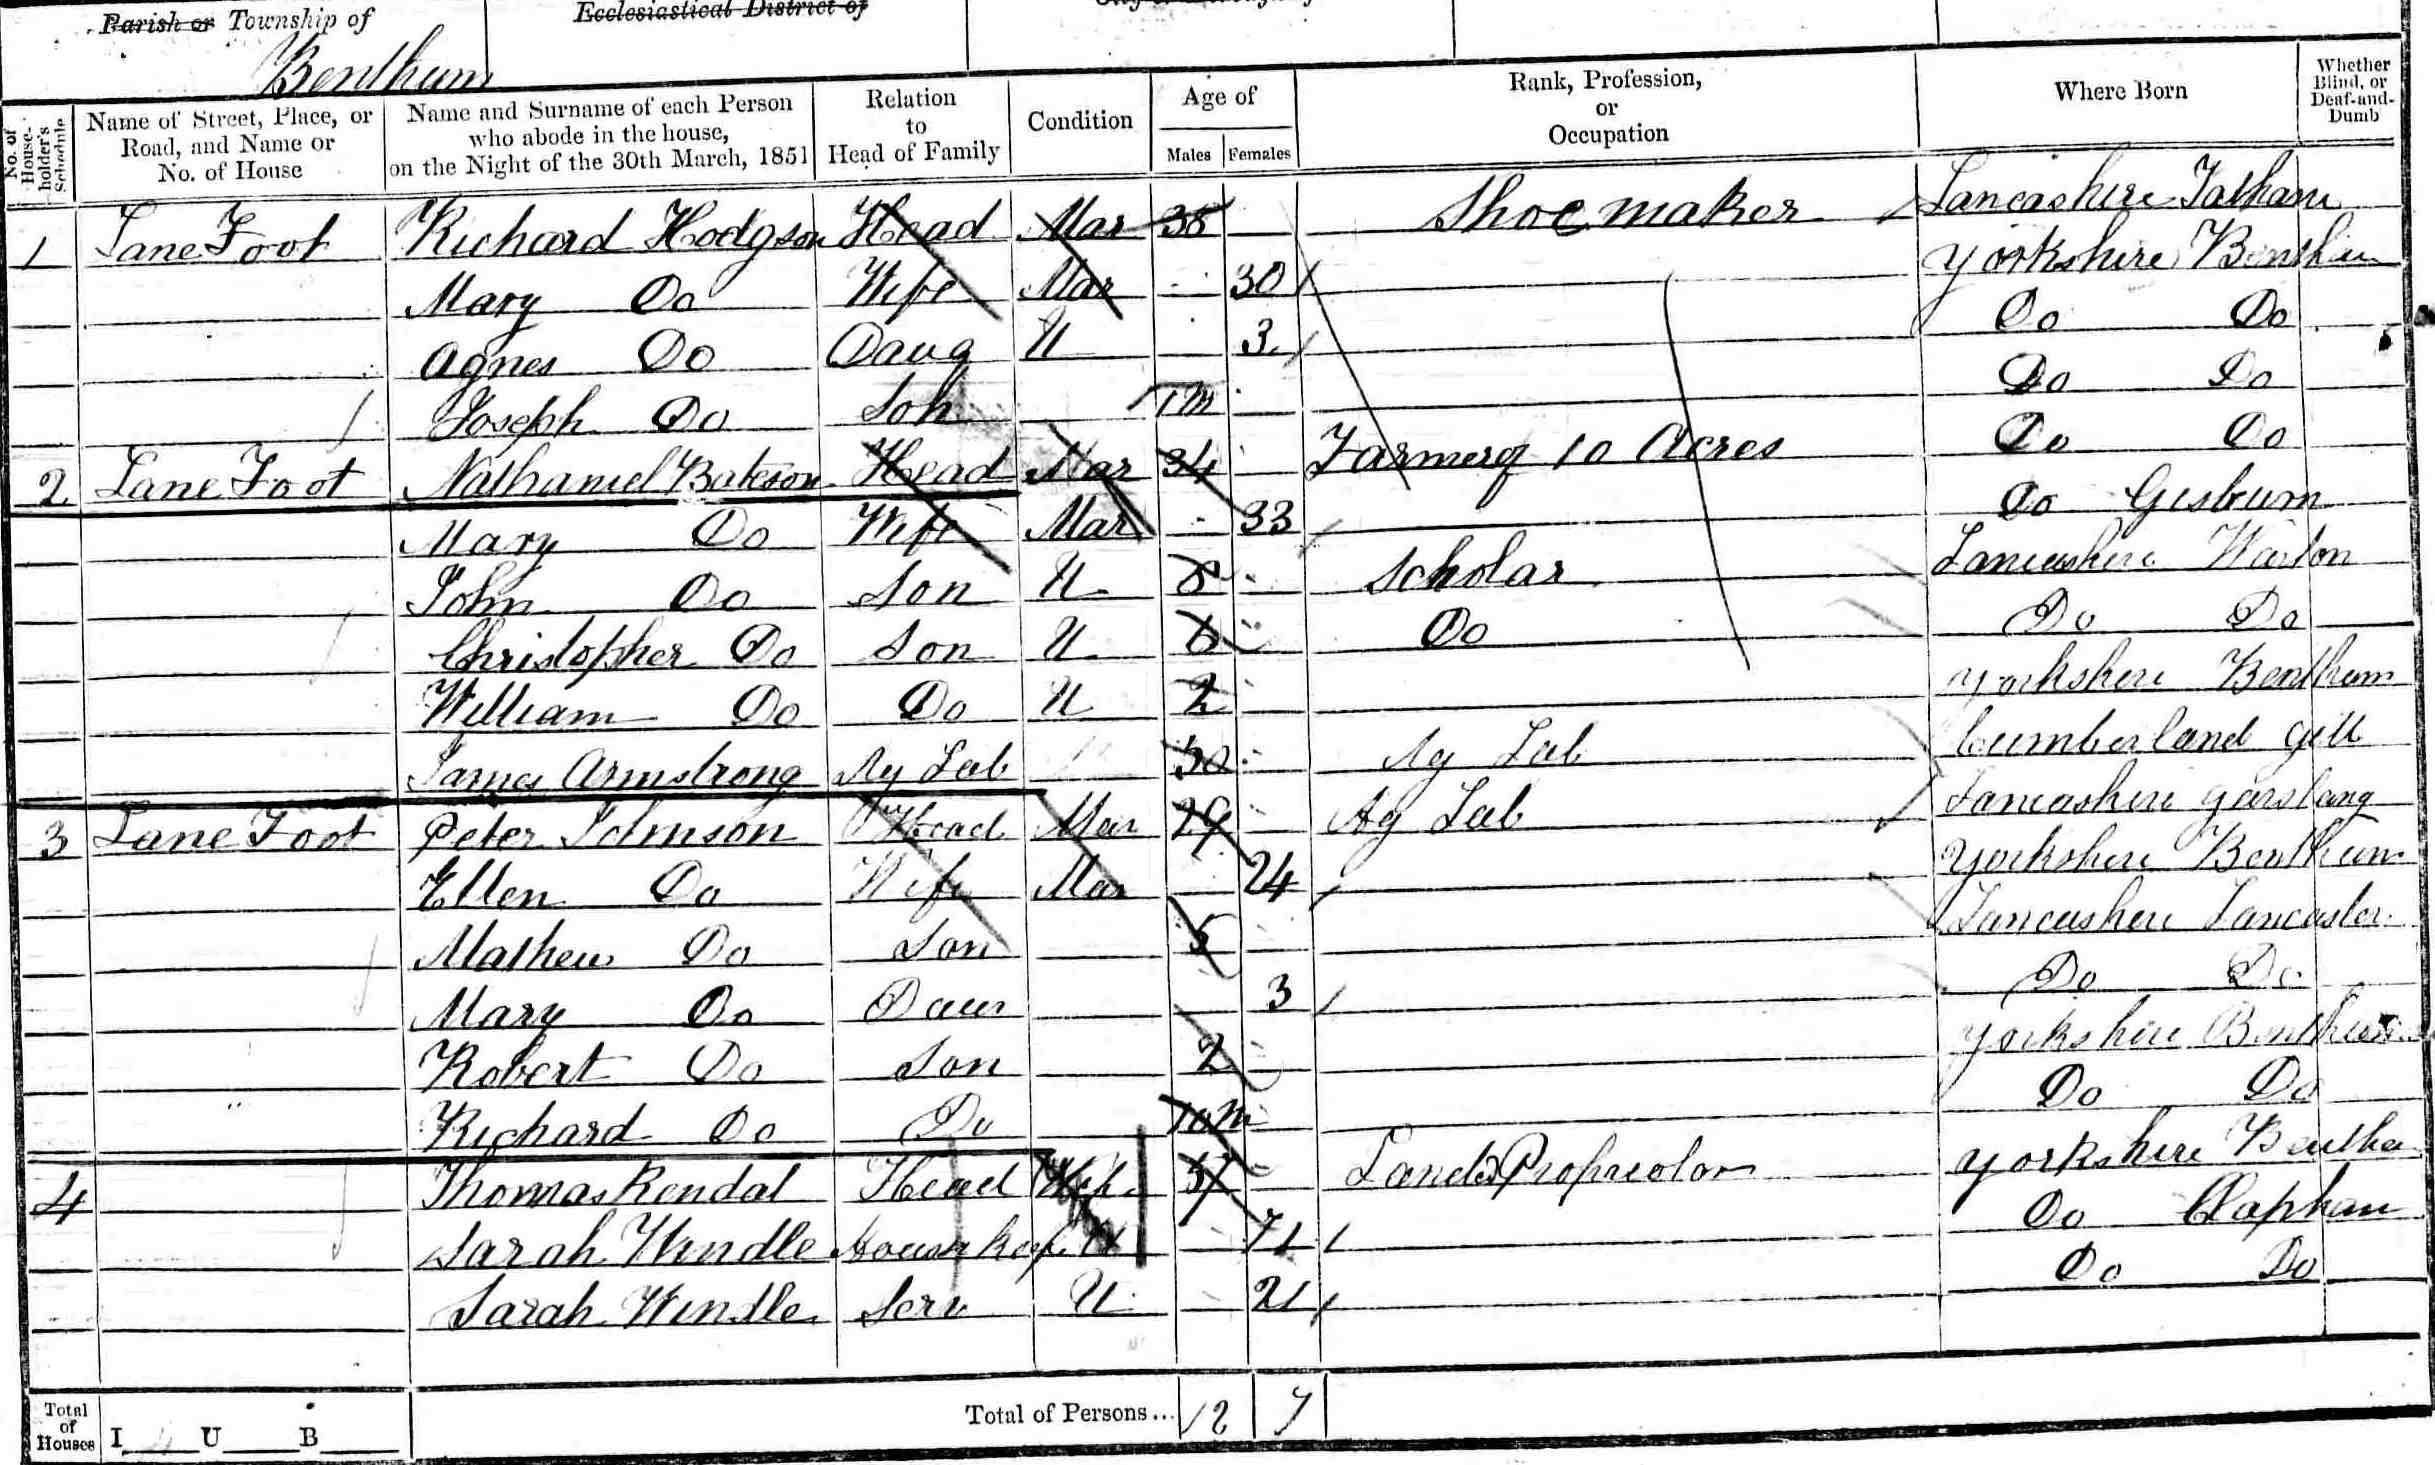 Parish or Township of
Ecclesiastical District of
Bentham
No. of House-holder's Schedule
Name of Street, Place, or Road, and Name or No. of House
Name and Surname of each Person who abode in the house, on the Night of the 30th March, 1851
Relation to Head of Family
Condition
Age of
Males Females
Rank, Profession, or Occupation
Where Born
Whether Blind, or Deaf-and-Dumb
1 Lane Foot Richard Hodgson Head Mar 38 Shoemaker Lancashire Tatham
Mary Do Wife Mar 30 Yorkshire Bentham
Agnes Do Daug U 3 Do Do
Joseph Do Son 1m Do Do
2 Lane Foot Nathaniel Bateson Head Mar 34 Farmer of 10 Acres Do Do
Mary Do Wife Mar 33 Do Gisburn
John Do Son U 8 Scholar Lancashire Warton
Christopher Do Son U 6 Do Do Do
William Do Do U 2 Yorkshire Bentham
James Armstrong Ag Lab 30 Ag Lab Cumberland
3 Lane Foot Peter Johnson Head Mar 29 Ag Lab Lancashire Garstang
Ellen Do Wife Mar 24 Yorkshire Bentham
Mathew Do Son 5 Lancashire Lancaster
Mary Do Daur 3 Do Do
Robert Do Son 2 Yorkshire Bentham
Richard Do Do 10m Do Do
4 Thomas Rendal Head Landed Propreotor Yorkshire Bentha
Sarah Windle Housekeep U 71 Do Clapham
Sarah Windle Serv U 21 Do Do
Total of Houses I 4 U B
Total of Persons... 12 7